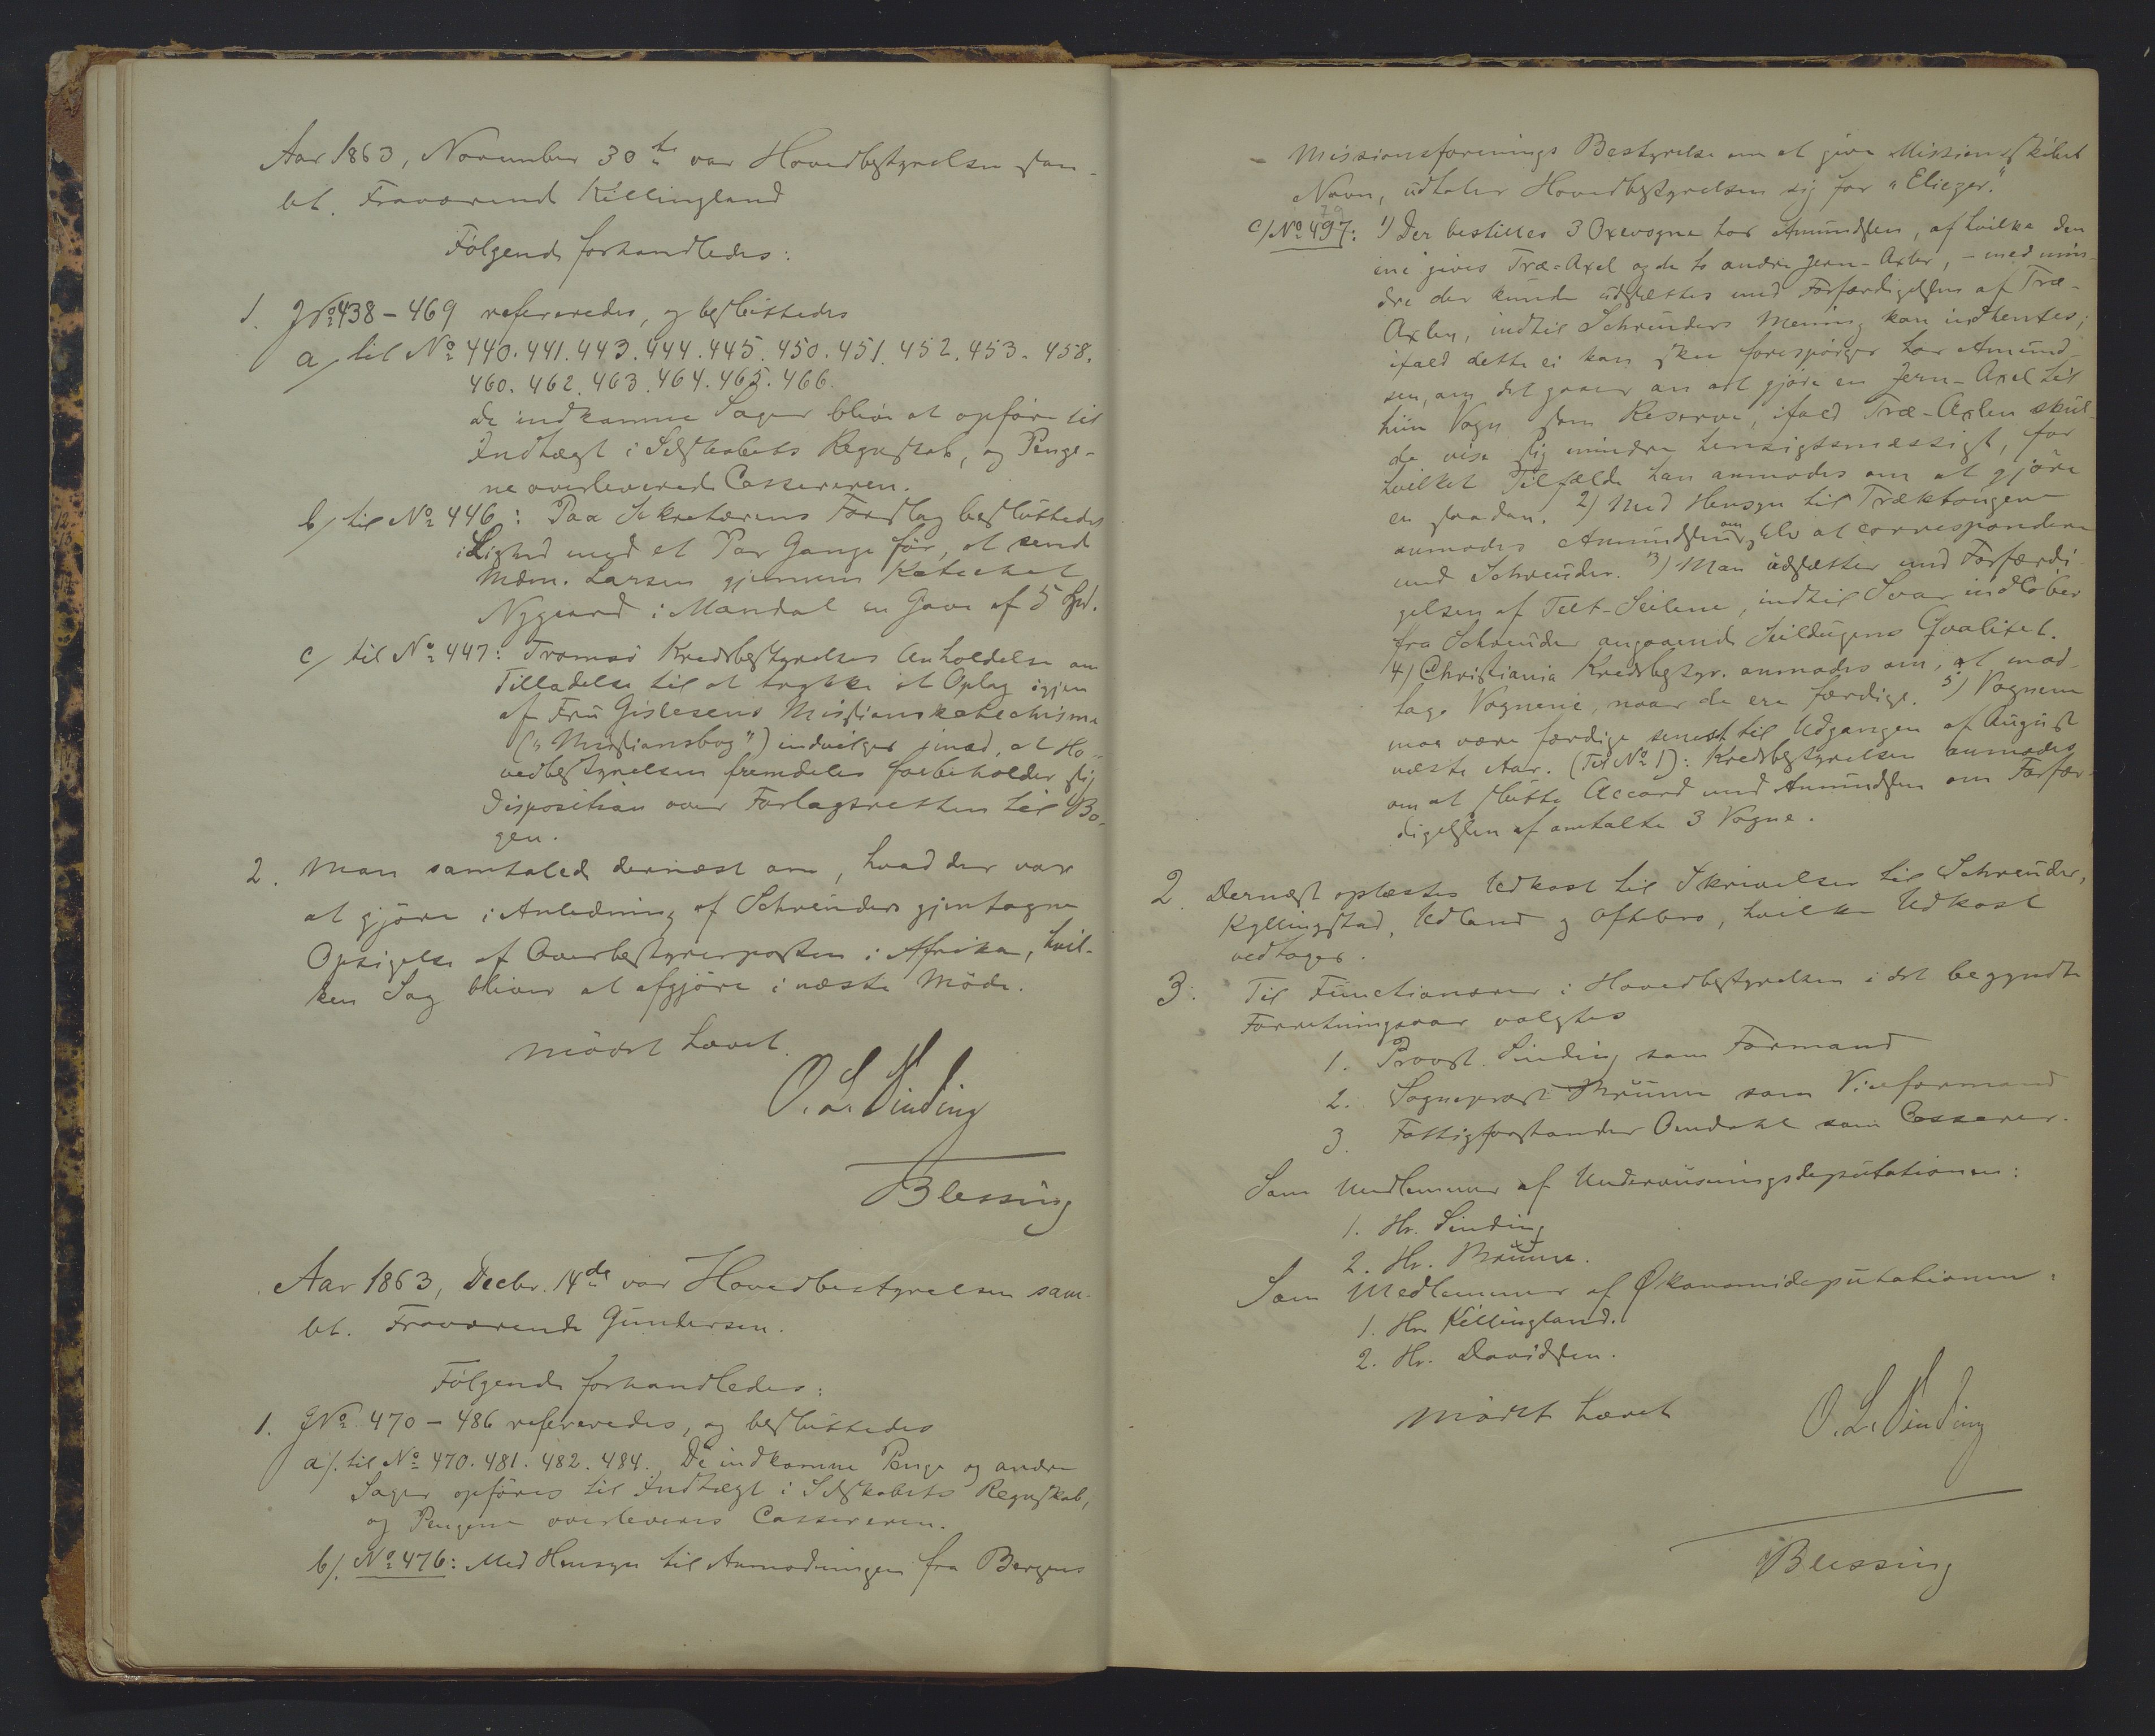 Aar 1863, November 30te var Hovedbestyrelsen sam-
let. Fraværende Killingland
Følgende forhandledes:
1. J№ 438-469 refereredes, og besluttedes
a/ til № 440. 441. 443. 444. 445. 450. 451. 452. 453. 458.
460. 462. 463. 464. 465. 466.
de indkomne Sager blive at opføre til
Indtægt i Selskabets Regnskab, og Penge-
ne overleverede Cassereren.
b/ til № 446: Paa Sekretærens Forslag besluttedes
i Lighed med et Par Gange før, at sende
Mdm. Larsen gjennem Katechet
Nygaard i Mandal en Gave af 5 Spd.
c/ til № 447: Tromsø Kredsbestyrelses Anholdelse om
Tilladelse til at trykke et Oplag igjen
af Fru Gislesens Missionskatechisme
("Missionsbog") indvilges imod, at Ho-
vedbestyrelsen fremdeles forbeholder sig
Disposition over Forlagsretten til Bo-
gen.
2. Man samtalede dernæst om, hvad der var
at gjøre i Anledning af Schreuders gjentagne
Opsigelse af Overbestyrerposten i Afrika, hvil-
ken Sag bliver at afgjøre i næste Møde.
Mødet hævet.
O. L. Sinding
Blessing
Aar 1863, Decbr. 14de var Hovedbestyrelsen sam-
let. Fraværende Gundersen.
Følgende forhandledes:
1. J№ 470-486 refereredes, og besluttedes
a/. til № 470. 481. 482. 484. De indkomne Penge og andre
Sager opføres til Indtægt i Selskabets Regnskab,
og Pengene overleveres Cassereren.
b/. № 476: Med Hensyn til Anmodningen fra Bergens
Missionsforenings Bestyrelse om at give Missionsskibet
Navn, udtaler Hovedbestyrelsen sig for "Eliezer."
79
c/ № 497: 1) Der bestilles 3 Oxevogne hos Amundsen, af hvilke den
ene gives Træ-Axel og de to andre Jern-Axler, - med min-
dre der kunde udsættes med Forfærdigelsen af Træ-
Axlen, indtil Schreuders Mening kan indhentes;
ifald dette ei kan skee forespørges hos Amund-
sen, om det gaaer an at gjøre en Jern-Axel til
hiin Vogn som Reserve, ifald Træ-Axlen skul-
de vise sig mindre hensigtsmæssigt, for
hvilket Tilfælde han anmodes om at gjøre
en saadan. 2) Med Hensyn til Træktougene
anmodes Amundsen om selv at correspondere
med Schreuder. 3) Man udsætter med Forfærdi-
gelsen af Telt-Seilene, indtil Svar indløber
fra Schreuder angaaende Seildugens Qvalitet.
4) Christiania Kredsbestyr. anmodes om, at mod-
tage Vognene, naar de ere færdige. 5) Vognene
maa være færdige senest til Udgangen af August
næste Aar. (Til № 1): Kredsbestyrelsen anmodes
om at slutte Accord med Amundsen om Forfær-
digelsen af omtalte 3 Vogne.
2. Dernæst oplæstes Udkast til Skrivelser til Schreuder,
Kyllingstad, Udland og Oftebro, hvilke Udkast
vedtoges.
3. Til Functionærer i Hovedbestyrelsen i det begyndte
Forretningsaar valgtes
1. Provst Sinding som Formand
2. Sognepræst Bruun som Viceformand
3. Fattigforstander Omdahl som Casserer.
Som Medlemmer af Underviisningsdeputationen:
1. Hr. Sinding
2. Hr. Bruun.
Som Medlemmer af Økonomideputationen:
1. Hr. Killingland.
2. Hr. Davidsen.
Mødet hævet
O. L. Sinding
Blessing